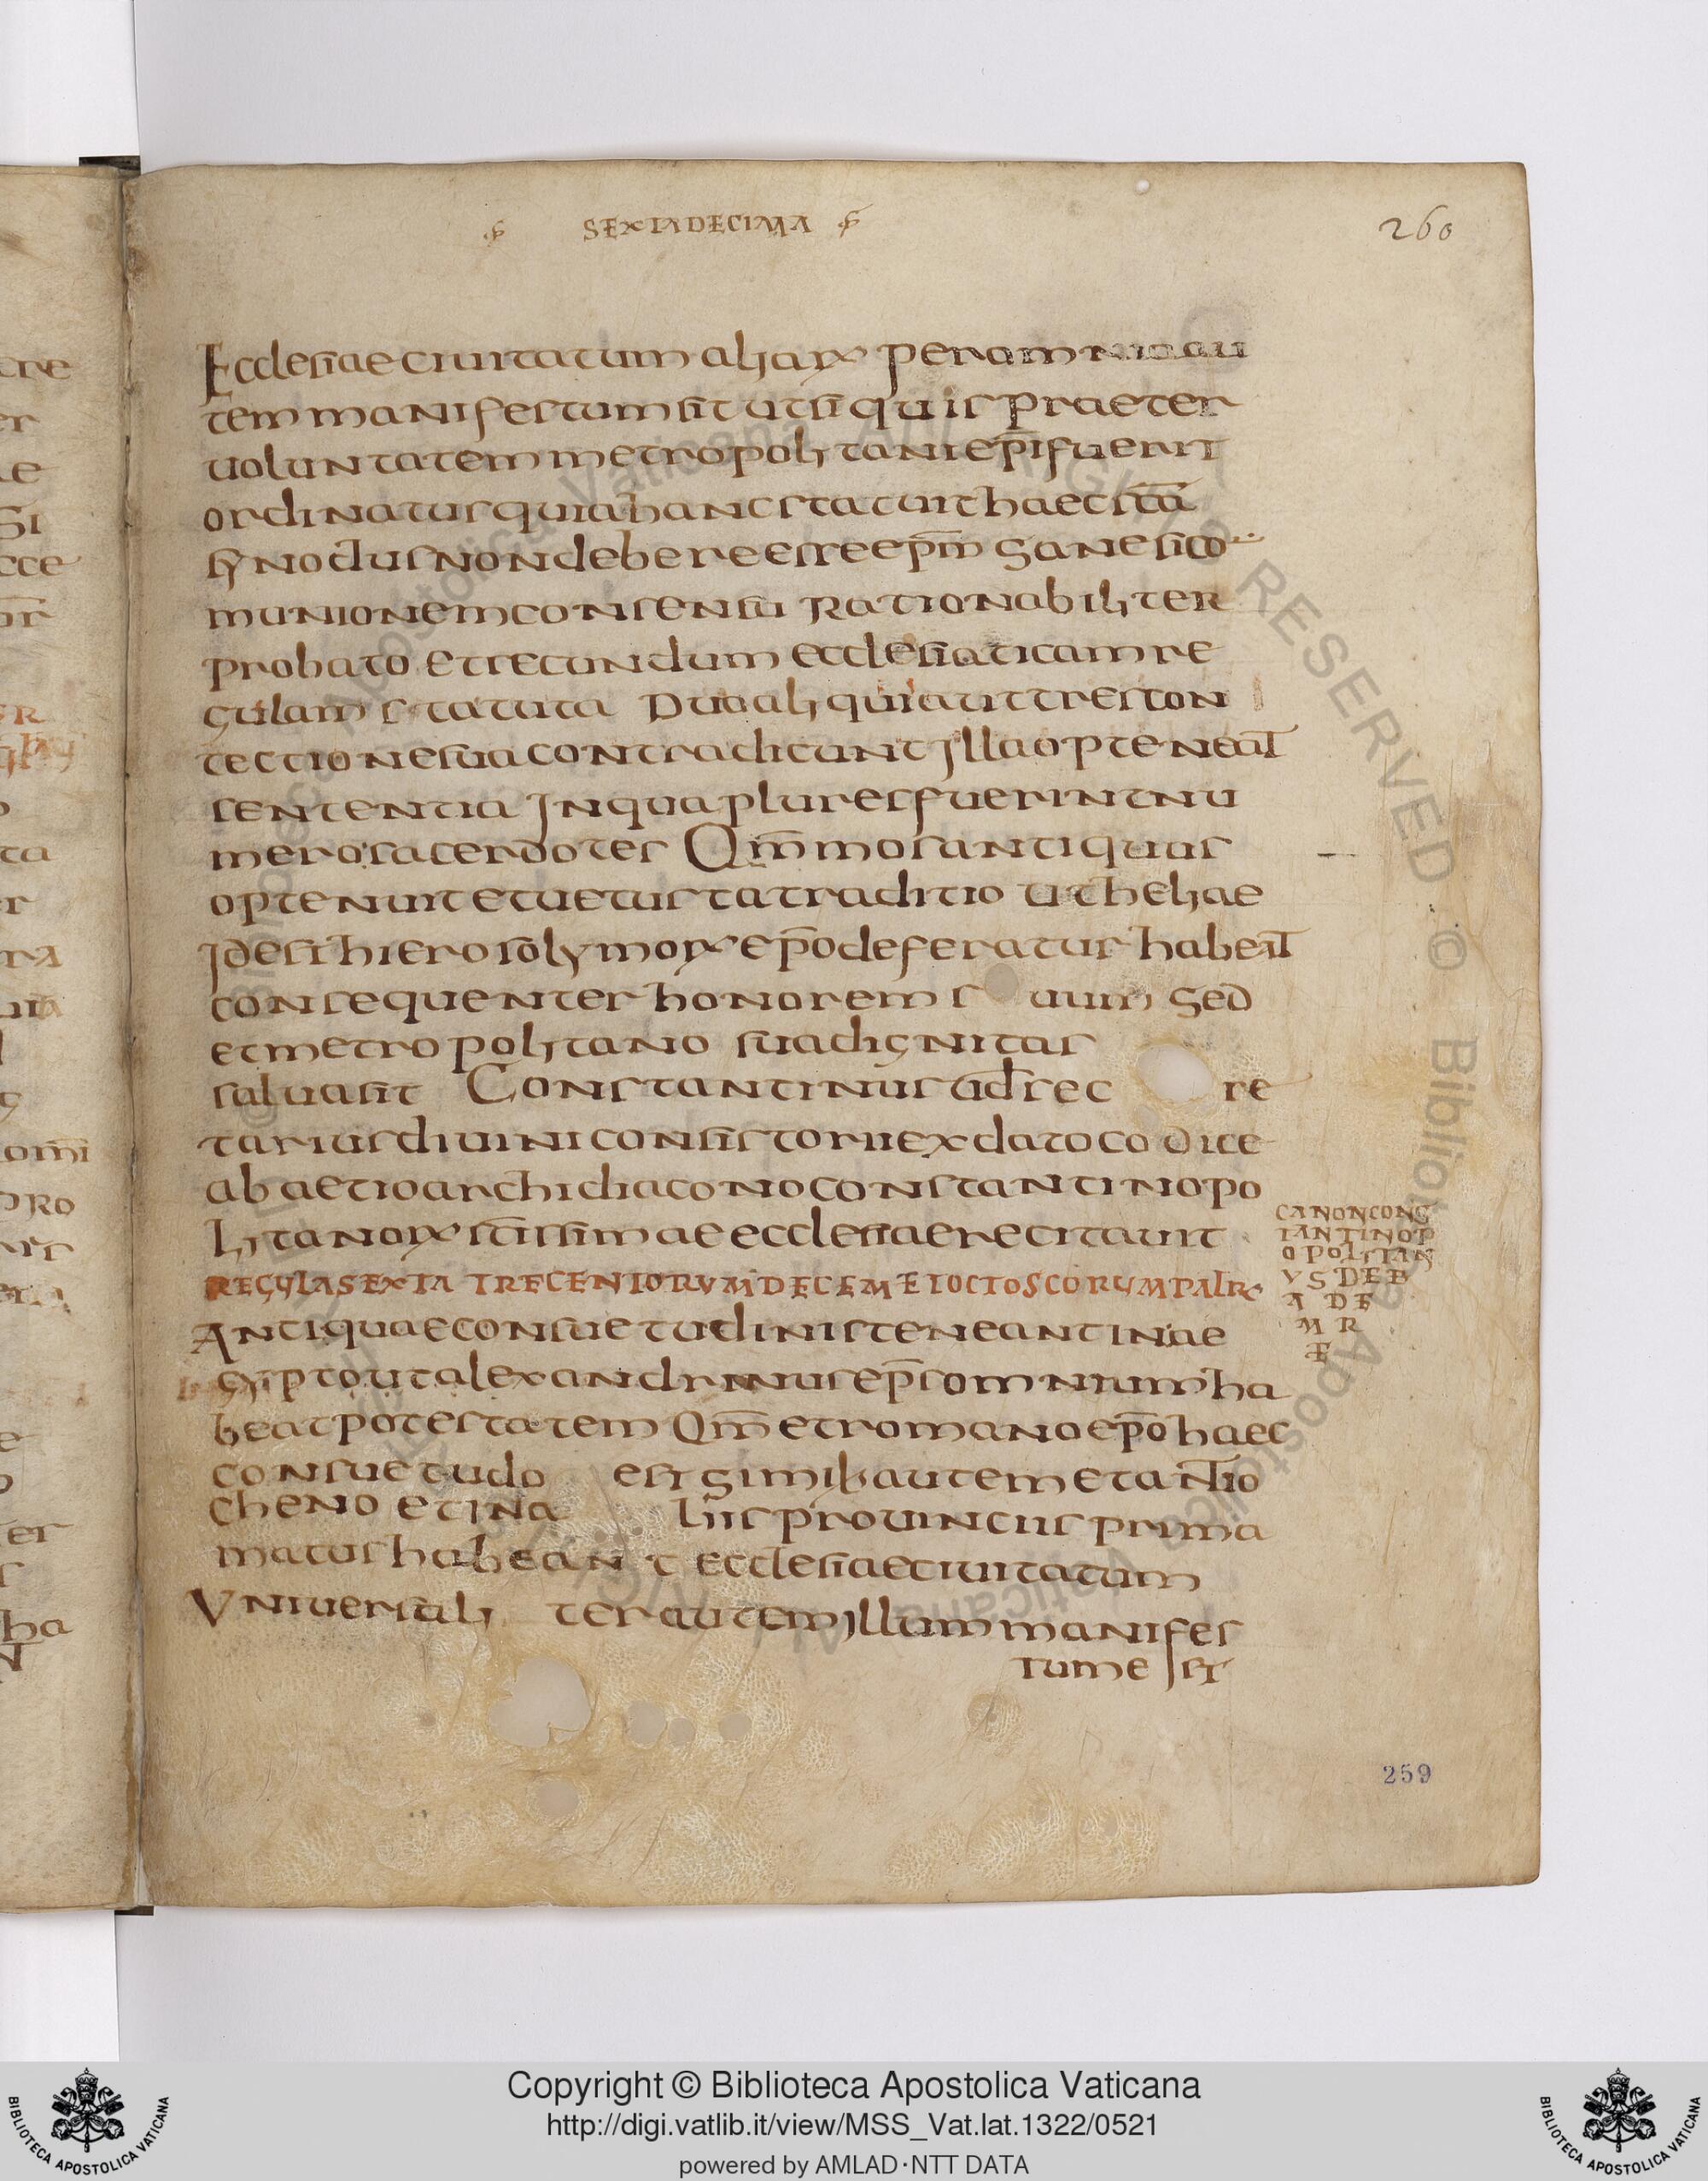 SEXTADECIMA
260
Ecclesiae ciuitatum aliarum per omnia au
tem manifestum sit ut si quis praeter
uoluntatem metropolitani ep̄i fuerit
ordinatus quia hanc statuit haec s̄ta
synodus non debere esse ep̄m sane si co
munionem consensu rationabiliter
probato et secundum ecclesiaticam re
gulam statuta duo aliqui aut tres con
tectione sua contradicunt illa opteneat
sententia in qua plures fuerint nu
mero sacerdotes Qm̄ mos antiquus
optenuit et uetusta traditio ut heliae
id est hierosolymorum ep̄o deferatur habeat
consequenter honorem suum sed
et metropolitano sua dignitas
salua sit Constantinus u̅d̅ secre
tarius diuini consistorii ex dato codice
ab aetio archidiacono constantinopo
litanorum s̄tissimae ecclesiae recitauit
REGULA SEXTA TRECENTORUM DECEM ET OCTO SCORUM PATRC
Antiquae consuetudinis teneant in ae
gypto ut alexandrinus ep̄s omnium ha
beat potestatem Qm̄ et romano ep̄o haec
consuetudo est simil autem et antio
cheno et in aliis prouinciis prima
matus habeant ecclesiae ciuitatum
Uniuersaliter autem illum manifes
tum est
CANON CONS
TANTINOP
OPOLITAN
VS DEB
A DE
M R
Æ
259
Copyright © Biblioteca Apostolica Vaticana
http://digi.vatlib.it/view/MSS_Vat.lat.1322/0521
powered by AMLAD·NTT DATA
BIBLIOTECA APOSTOLICA VATICANA
BIBLIOTECA APOSTOLICA VATICANA